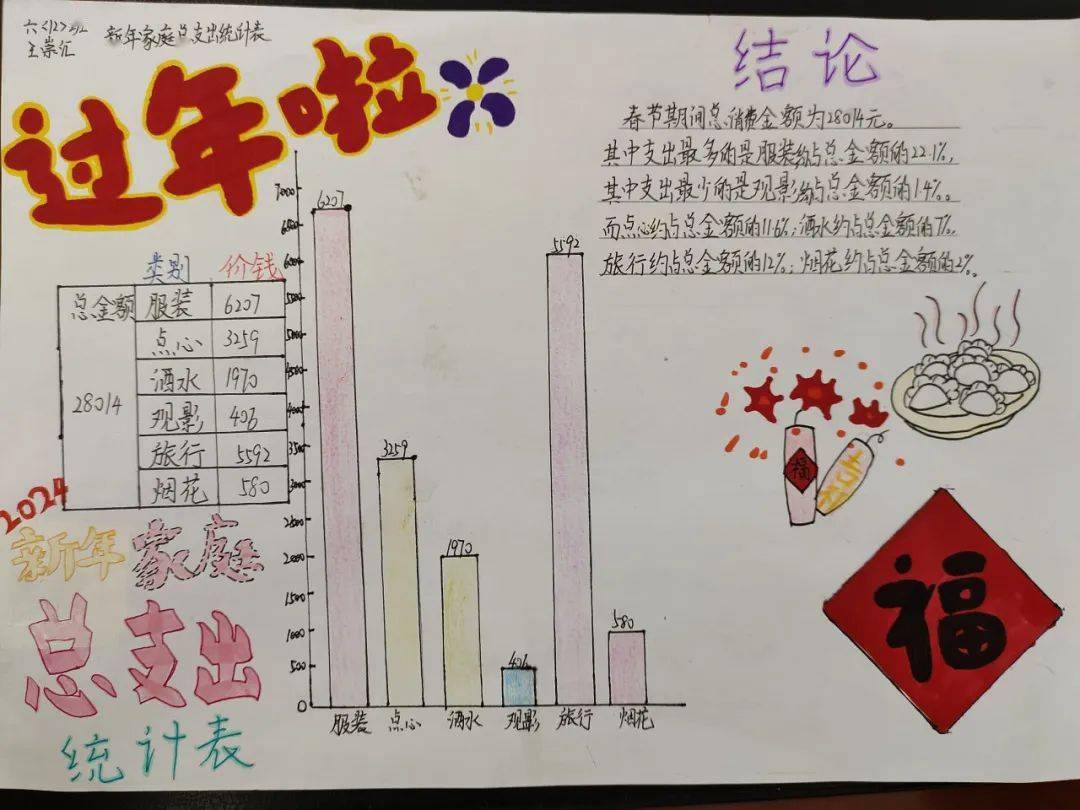 六<12>班
王崇汇
新年家庭总支出统计表
过年啦
类别 价钱
总金额 服装 6207
点心 3259
洒水 1970
28014
观影 406
旅行 5592
烟花 580
2024
新年家庭
总支出
统计表
7000
6500
6000
5500
5000
4500
4000
3500
3000
2500
2000
1500
1000
500
0
6207
3259
1970
406
5592
580
服装 点心 洒水 观影 旅行 烟花
结论
春节期间总消费金额为28014元。
其中支出最多的是服装约占总金额的22.1%,
其中支出最少的是观影约占总金额的1.4%。
而点心约占总金额的11.6%;洒水约占总金额的7%,
旅行约占总金额的12%;烟花约占总金额的2%
福
福